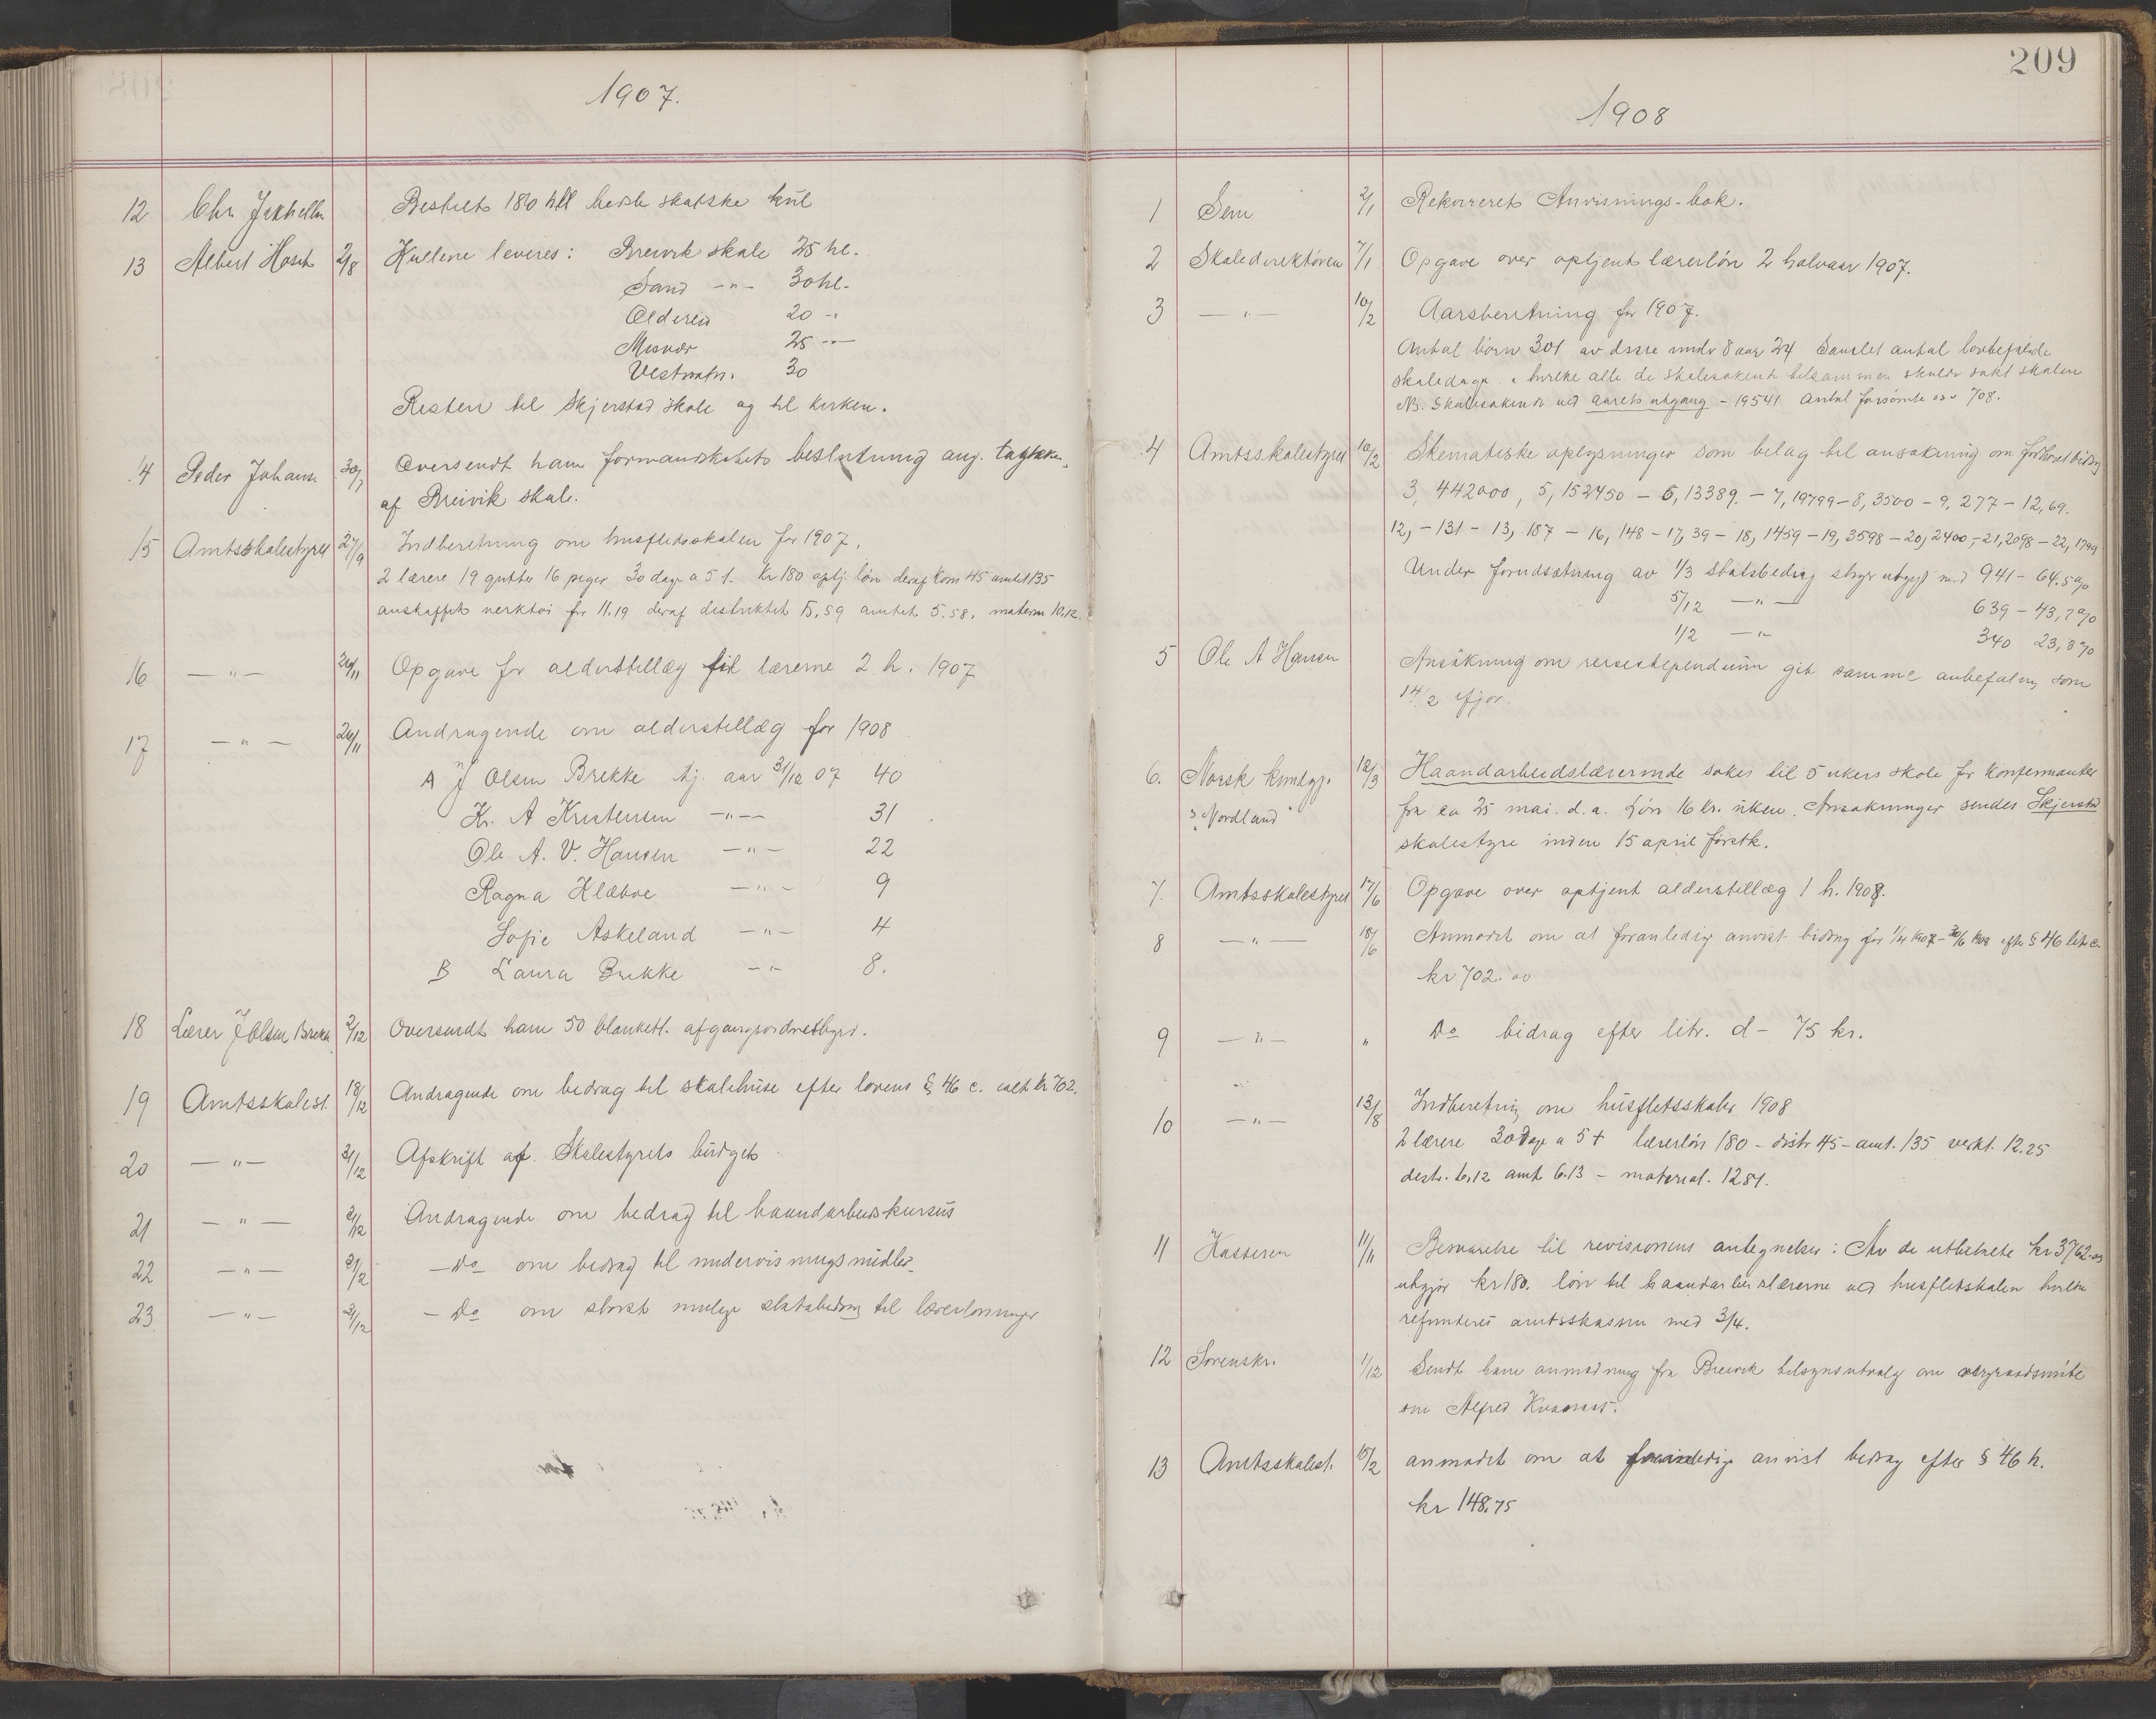 1907.
12 Chr. Bestilt 180 hll bedste skotske kul
13 Albert Hosch 2/8 Kullene leveres: Breivik skole 25 hl.
Sand -"- 30 hl.
Oldereid 20 -"
Misvær 25 -"-
Vestvatn. 30
Resten til Skjerstad skole og til kirken.
14 Peder Johans 30/7 Oversendt ham formandskabets beslutning ang.
af Breivik skole.
15 Amtsskolestyret 27/9 Indberetning om husflidsskolen for 1907.
2 lærere 19 gutter 16 piger 30 dage a 5 t. Kr 180 optj. løn deraf kom 45 amtet 135
anskaffet verktøi for 11.19 deraf distriktet 5,59 amtet 5.58. 10.12.
16 -"- 26/11 Opgave for alderstillæg til lærerne 2 h. 1907
17 -"- 26/11 Andragende om alderstillæg for 1908
A J Olsen Brekke tj. aar 31/12 07 40
Kr. A Kristensen -"- 31
Ole A. V. Hansen -"- 22
Ragna Klæboe -"- 9
Sofie Askeland -"- 4
B Laura Brekke -"- 8.
18 Lærer J Olsen Brekke 2/12 Oversendt ham 50 blankett.
19 Amtsskolest. 18/12 Andragende om bidrag til skolehuse efter lovens § 46 c. ialt kr 702.
20 -"- 31/12 Afskrift af Skolestyrets budget
21 -"- 31/12 Andragende om bidrag til haandarbeidskursus
22 -"- 31/12 - Do om bidrag til undervisningsmidler
23 -"- 31/12 - Do om størst mulige statsbidrag til lærerlønninger
209
1908
1 Sem 2/1 Rekvireret Anvisnings-bok.
2 Skoledirektøren 7/1 Opgave over optjent lærerløn 2 halvaar 1907.
3 -"- 10/2 Aarsberetning for 1907.
Antal børn 301 av disse under 8 aar 24 Samlet antal lovbefalede
skoledage i hvilke alle de skolesøkende tilsammen skulde søkt skolen
NB. Skolesøkende ved aarets utgang - 19541 Antal forsømte 708.
4 Amtsskolestyret 10/2 Skematiske oplysninger som bilag til ansøkning om
3, 442000, 5, 152450 - 6, 13389. - 7, 19799 - 8, 3500 - 9, 277 - 12, 69.
12, - 131 - 13, 187 - 16, 148 - 17, 39 - 18, 1459 - 19, 3598 - 20, 2400, - 21, 2098 - 22, 1799
Under forudsætning av 1/3 Statsbidrag med 941 - 64.5%
5/12 -"- 639 - 43,7%
1/2 -"- 340 23,3%
5 Ole A Hansen Ansøkning om reisestipendium git samme anbefaling som
14/2 ifjor
6. Norsk kundgj. 12/3 Haandarbeidslærerinde søkes til 5 ukers skole for konfirmanter
"Nordland" fra ca 25 mai. d. a. Løn 16 kr. uken. Ansøkninger sendes Skjerstad
skolestyre inden 15 april førstk.
7. Amtsskolestyret 17/6 Opgave over optjent alderstillæg 1 h. 1908.
8 -"- 18/6 Anmodet om at foranledige anvist bidrag for 1/4 1907 - 30/6 1908 efter § 46 litr c.
kr 702.00
9 -"- " Do bidrag efter litr. d - 75 kr.
10 -"- 13/8 Indberetning om husflidsskoler 1908
2 lærere 30 dage a 5 t lærerløn 180 - distr 45 - amt. 135 verkt. 12.25
distr. 6.12 amt 6.13 - material. 1281.
11 Kassereren 11/11 Besvarelse til revisionens antegnelser: Av de utbetalte kr 3762.
utgjør kr 180. løn til haandarbeidslærerne ved husflidsskolen hvilke
refunderes amtskassen med 3/4.
12 Sorenskr. 1/12 Sendt ham anmodning fra Breivik tilsynsutvalg om vergeraadsmøte
om Alfred
13 Amtsskolest. 15/2 anmodet om at foranledige anvist bidrag efter § 46 h.
kr 148.75